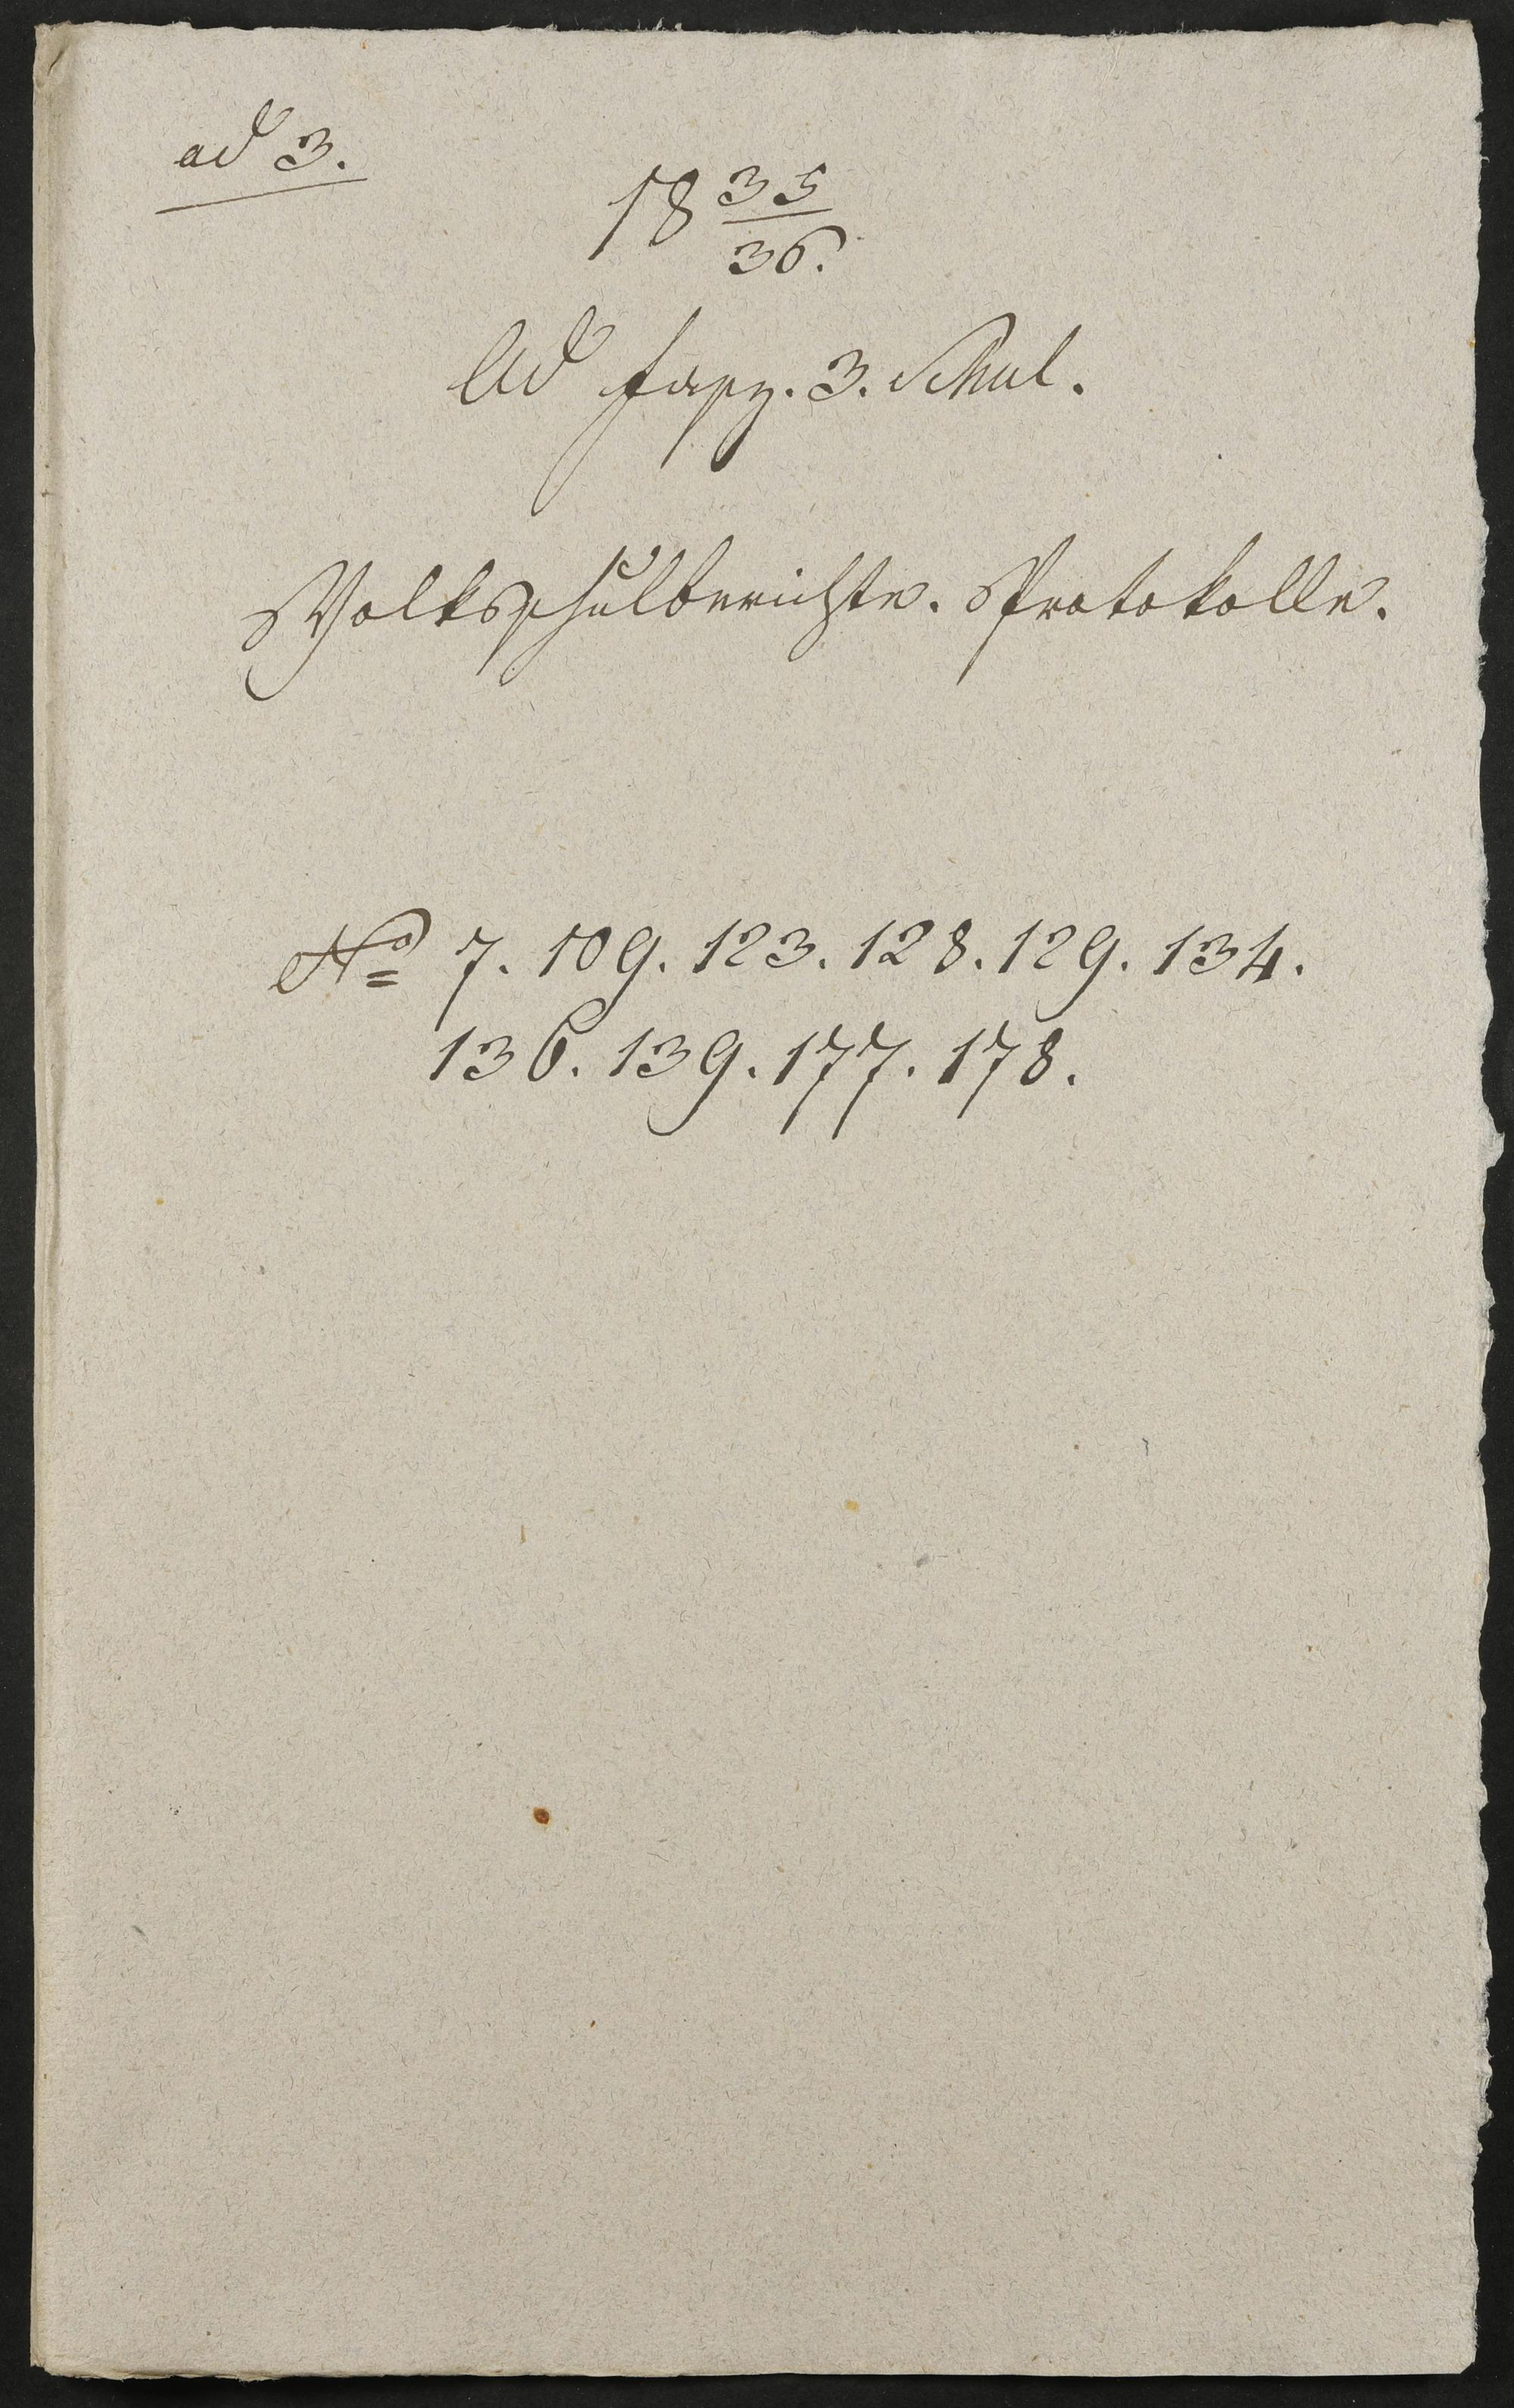 ad 3.
18 35/36.
Ad fasz. 3. Schul.
Volksschulberichte. Protokolle.
No 7. 109. 123. 128. 129. 134.
136. 139. 177. 178.